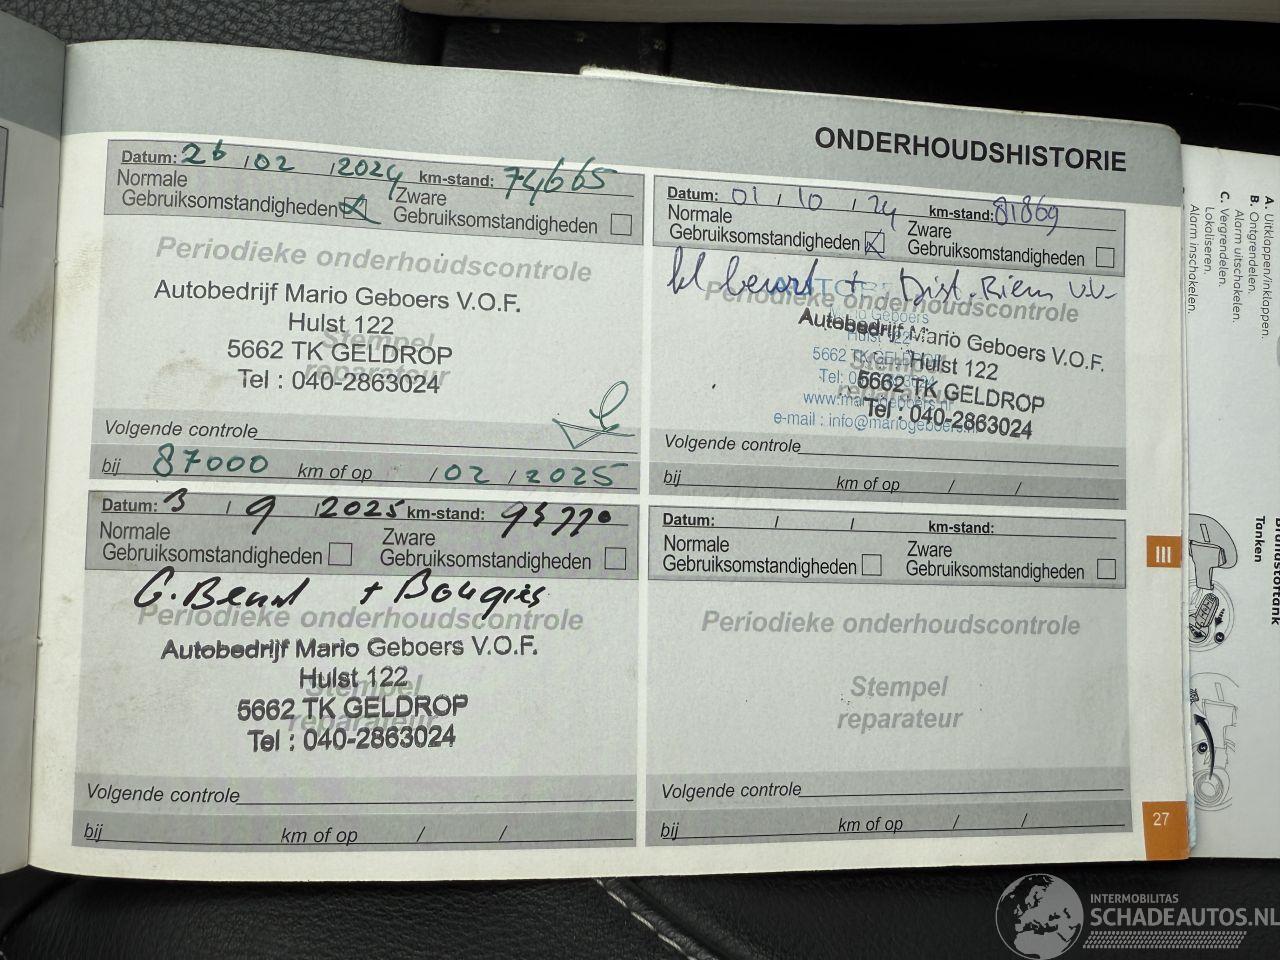 ONDERHOUDSHISTORIE
Datum: 26 / 02 / 2024 km-stand: 74665
Normale Gebruiksomstandigheden
Zware Gebruiksomstandigheden
Periodieke onderhoudscontrole
Autobedrijf Mario Geboers V.O.F.
Hulst 122
Stempel
5662 TK GELDROP
reparateur
Tel : 040-2863024
Volgende controle
bij 87000 km of op / 02 / 2025
Datum: 01 / 10 / 24 km-stand: 81869
Normale Gebruiksomstandigheden
Zware Gebruiksomstandigheden
kl beurt + Dist. Riem v.v.
Periodieke onderhoudscontrole
Mario Geboers
Autobedrijf Mario Geboers V.O.F.
Hulst 122
Hulst 122
Stempel
5662 TK GELDROP
5662 TK GELDROP
Tel : 040-2863024
e-mail : info@mariogeboers.nl
Volgende controle
bij km of op / /
Datum: 3 / 9 / 2025 km-stand:
Normale Gebruiksomstandigheden
Zware Gebruiksomstandigheden
G. Beurt + Bougies
Periodieke onderhoudscontrole
Autobedrijf Mario Geboers V.O.F.
Hulst 122
Stempel
5662 TK GELDROP
reparateur
Tel : 040-2863024
Volgende controle
bij km of op / /
Datum: / / km-stand:
Normale Gebruiksomstandigheden
Zware Gebruiksomstandigheden
Periodieke onderhoudscontrole
Stempel
reparateur
Volgende controle
bij km of op / /
III
27
A. Uitklappen/inklappen.
B. Ontgrendelen.
Alarm uitschakelen.
C. Vergrendelen.
Lokaliseren.
Alarm inschakelen.
Brandstoftank
Tanken
INTERMOBILITAS
SCHADEAUTOS.NL